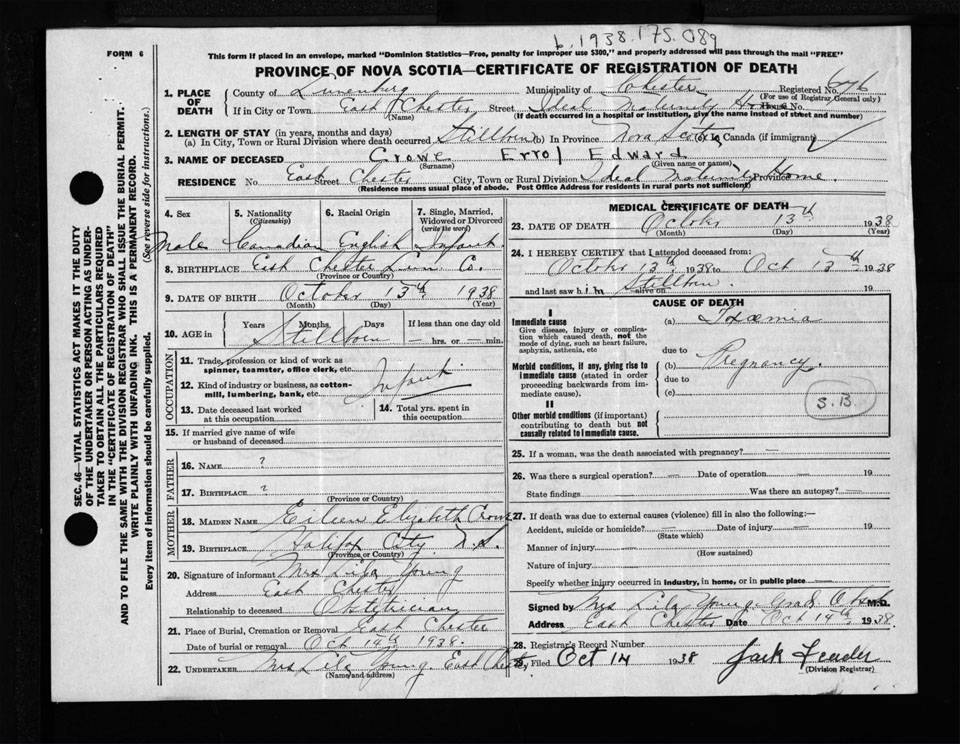 b.1938.175.089
FORM 6
This form if placed in an envelope, marked "Dominion Statistics—Free, penalty for improper use $300," and properly addressed will pass through the mail "FREE"
PROVINCE OF NOVA SCOTIA—CERTIFICATE OF REGISTRATION OF DEATH
1. PLACE OF DEATH County of Lunenburg Municipality of Chester Registered No.
(For use of Registrar General only)
If in City or Town East Chester Street Ideal Maternity Home House No.
(Name) (If death occurred in a hospital or institution, give the name instead of street and number)
2. LENGTH OF STAY (in years, months and days)
(a) In City, Town or Rural Division where death occurred Stillborn (b) In Province Nova Scotia (c) in Canada (if immigrant)
3. NAME OF DECEASED Crowe Errol Edward
(Surname) (Given name or names)
RESIDENCE No. East Street Chester City, Town or Rural Division Ideal Maternity Province Home.
(Residence means usual place of abode. Post Office Address for residents in rural parts not sufficient)
4. Sex 5. Nationality (Citizenship) 6. Racial Origin 7. Single, Married, Widowed or Divorced (write the word)
Male Canadian English Infant
8. BIRTHPLACE East Chester Lun Co.
(Province or Country)
9. DATE OF BIRTH October 13th 1938
(Month) (Day) (Year)
10. AGE in Years Months Days If less than one day old
Stillborn — hrs. or — min.
OCCUPATION
11. Trade, profession or kind of work as spinner, teamster, office clerk, etc.
12. Kind of industry or business, as cotton-mill, lumbering, bank, etc. Infant
13. Date deceased last worked at this occupation
14. Total yrs. spent in this occupation
15. If married give name of wife or husband of deceased
FATHER
16. NAME ?
17. BIRTHPLACE ?
(Province or Country)
MOTHER
18. MAIDEN NAME Eileen Elizabeth Crowe
19. BIRTHPLACE Halifax City N.S.
(Province or Country)
20. Signature of informant Mrs Lila Young
Address East Chester
Relationship to deceased Obstetrician
21. Place of Burial, Cremation or Removal East Chester
Date of burial or removal Oct 14th 1938.
22. UNDERTAKER Mrs Lila Young East Chester
(Name and address)
MEDICAL CERTIFICATE OF DEATH
23. DATE OF DEATH October 13th 1938
(Month) (Day) (Year)
24. I HEREBY CERTIFY that I attended deceased from:
October 13th 1938 to Oct 13th 1938
and last saw him alive on Stillborn. 19
CAUSE OF DEATH
I
Immediate cause (a) Toxaemia
Give disease, injury or complication which caused death, not the mode of dying, such as heart failure, asphyxia, asthenia, etc
due to
Morbid conditions, if any, giving rise to immediate cause (stated in order proceeding backwards from immediate cause). (b) Pregnancy.
due to
(c)
S.B.
II
Other morbid conditions (if important) contributing to death but not causally related to immediate cause.
25. If a woman, was the death associated with pregnancy? —
26. Was there a surgical operation? — Date of operation — 19
State findings Was there an autopsy? —
27. If death was due to external causes (violence) fill in also the following:—
Accident, suicide or homicide? — Date of injury — 19
(State which)
Manner of injury
(How sustained)
Nature of injury
Specify whether injury occurred in industry, in home, or in public place
Signed by Mrs Lila Young Grad Obst M.D.
Address East Chester Date Oct 14th 1938
28. Registrar's Record Number
29. Filed Oct 14 1938 Jack Feader
(Division Registrar)
SEC. 46—VITAL STATISTICS ACT MAKES IT THE DUTY
OF THE UNDERTAKER OR PERSON ACTING AS UNDER-
TAKER TO OBTAIN ALL THE PARTICULARS REQUIRED
IN THE "CERTIFICATE OF REGISTRATION OF DEATH"
AND TO FILE THE SAME WITH THE DIVISION REGISTRAR WHO SHALL ISSUE THE BURIAL PERMIT.
WRITE PLAINLY WITH UNFADING INK. THIS IS A PERMANENT RECORD.
Every item of information should be carefully supplied. (See reverse side for instructions.)